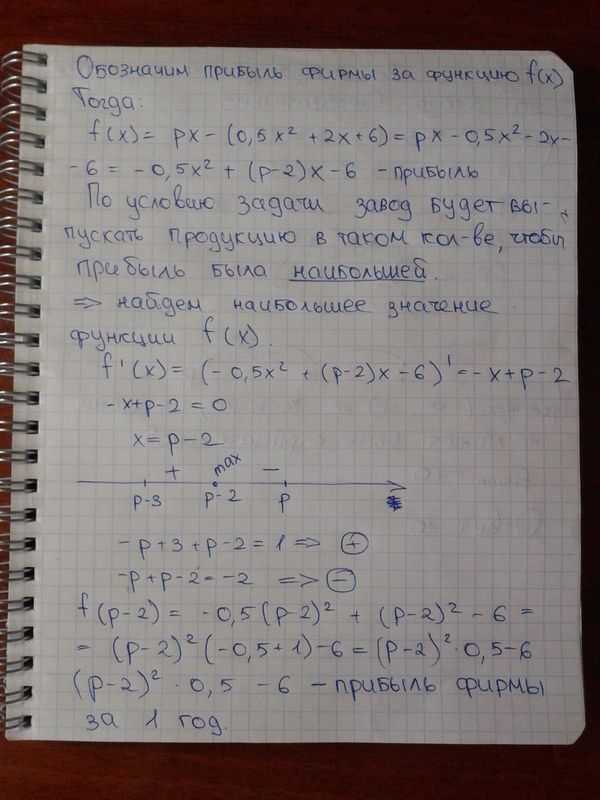 Обозначим прибыль фирмы за функцию f(x)
Тогда:
f(x) = px - (0,5x² + 2x + 6) = px - 0,5x² - 2x -
- 6 = - 0,5x² + (p-2)x - 6 - прибыль
По условию задачи завод будет вы-
пускать продукцию в таком кол-ве, чтобы
прибыль была наибольшей.
=> найдем наибольшее значение
функции f(x).
f'(x) = (-0,5x² + (p-2)x - 6)' = -x+p-2
-x+p-2 = 0
x = p-2
+ max -
p-3 p-2 p
-p+3+p-2 = 1 => +
-p+p-2 = -2 => -
f(p-2) = -0,5(p-2)² + (p-2)² - 6 =
= (p-2)²(-0,5+1)-6 = (p-2)²·0,5-6
(p-2)² · 0,5 - 6 - прибыль фирмы
за 1 год.